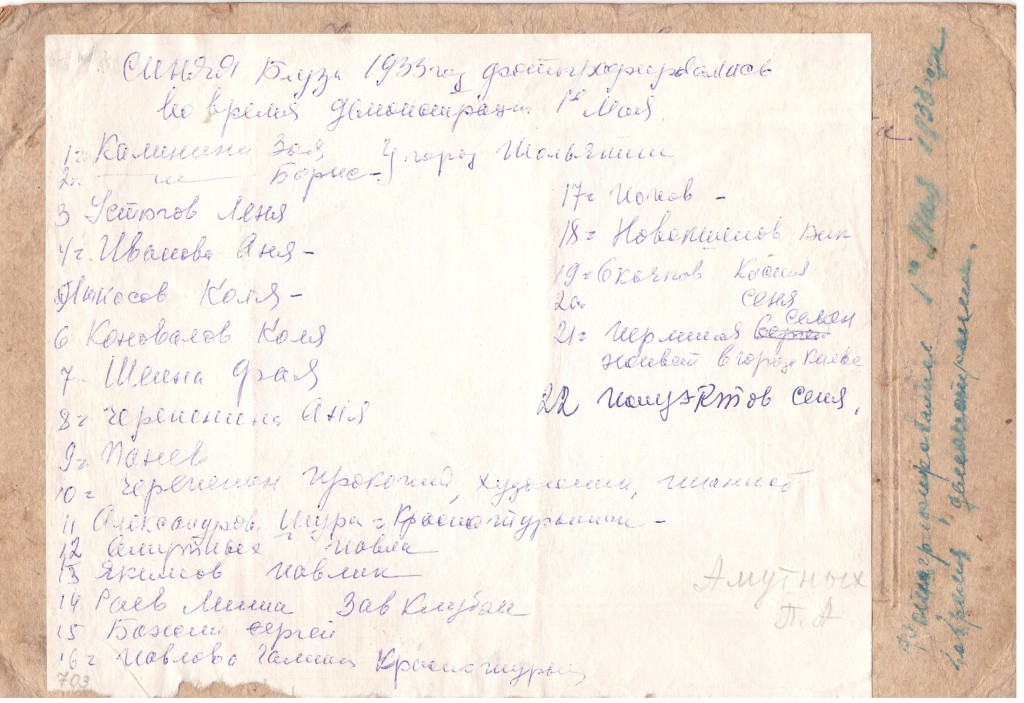 Синяя Блуза 1933 год фотографировались
во время демонстрации 1е Мая
1г Калинина Зоя
2г. —"— Борис - } город Тольятти
3 Устюгов Леня
4г. Иванова Аня -
5 Коля -
6 Коновалов Коля
7. Шеина Фая
8г Черепенина Аня
9г. Панев
10г Черепенин Прокопий, художник, пианист
11 Александров Шура - Краснотурьинск -
12 Амутных Павла
13 Якимов Павлик
14 Раев Миша Зав Клубом
15 Сергей
16г Павлова Галина Краснотурьинск
17г Попов -
18г Новокшенов
19г Костя
20. Сеня
21г Семен
Сергей
живет в городе
22 Сеня.
Амутных
П. А
703
Фотаграфировался 1го Мая 1933 года
вовремя демонстрации.